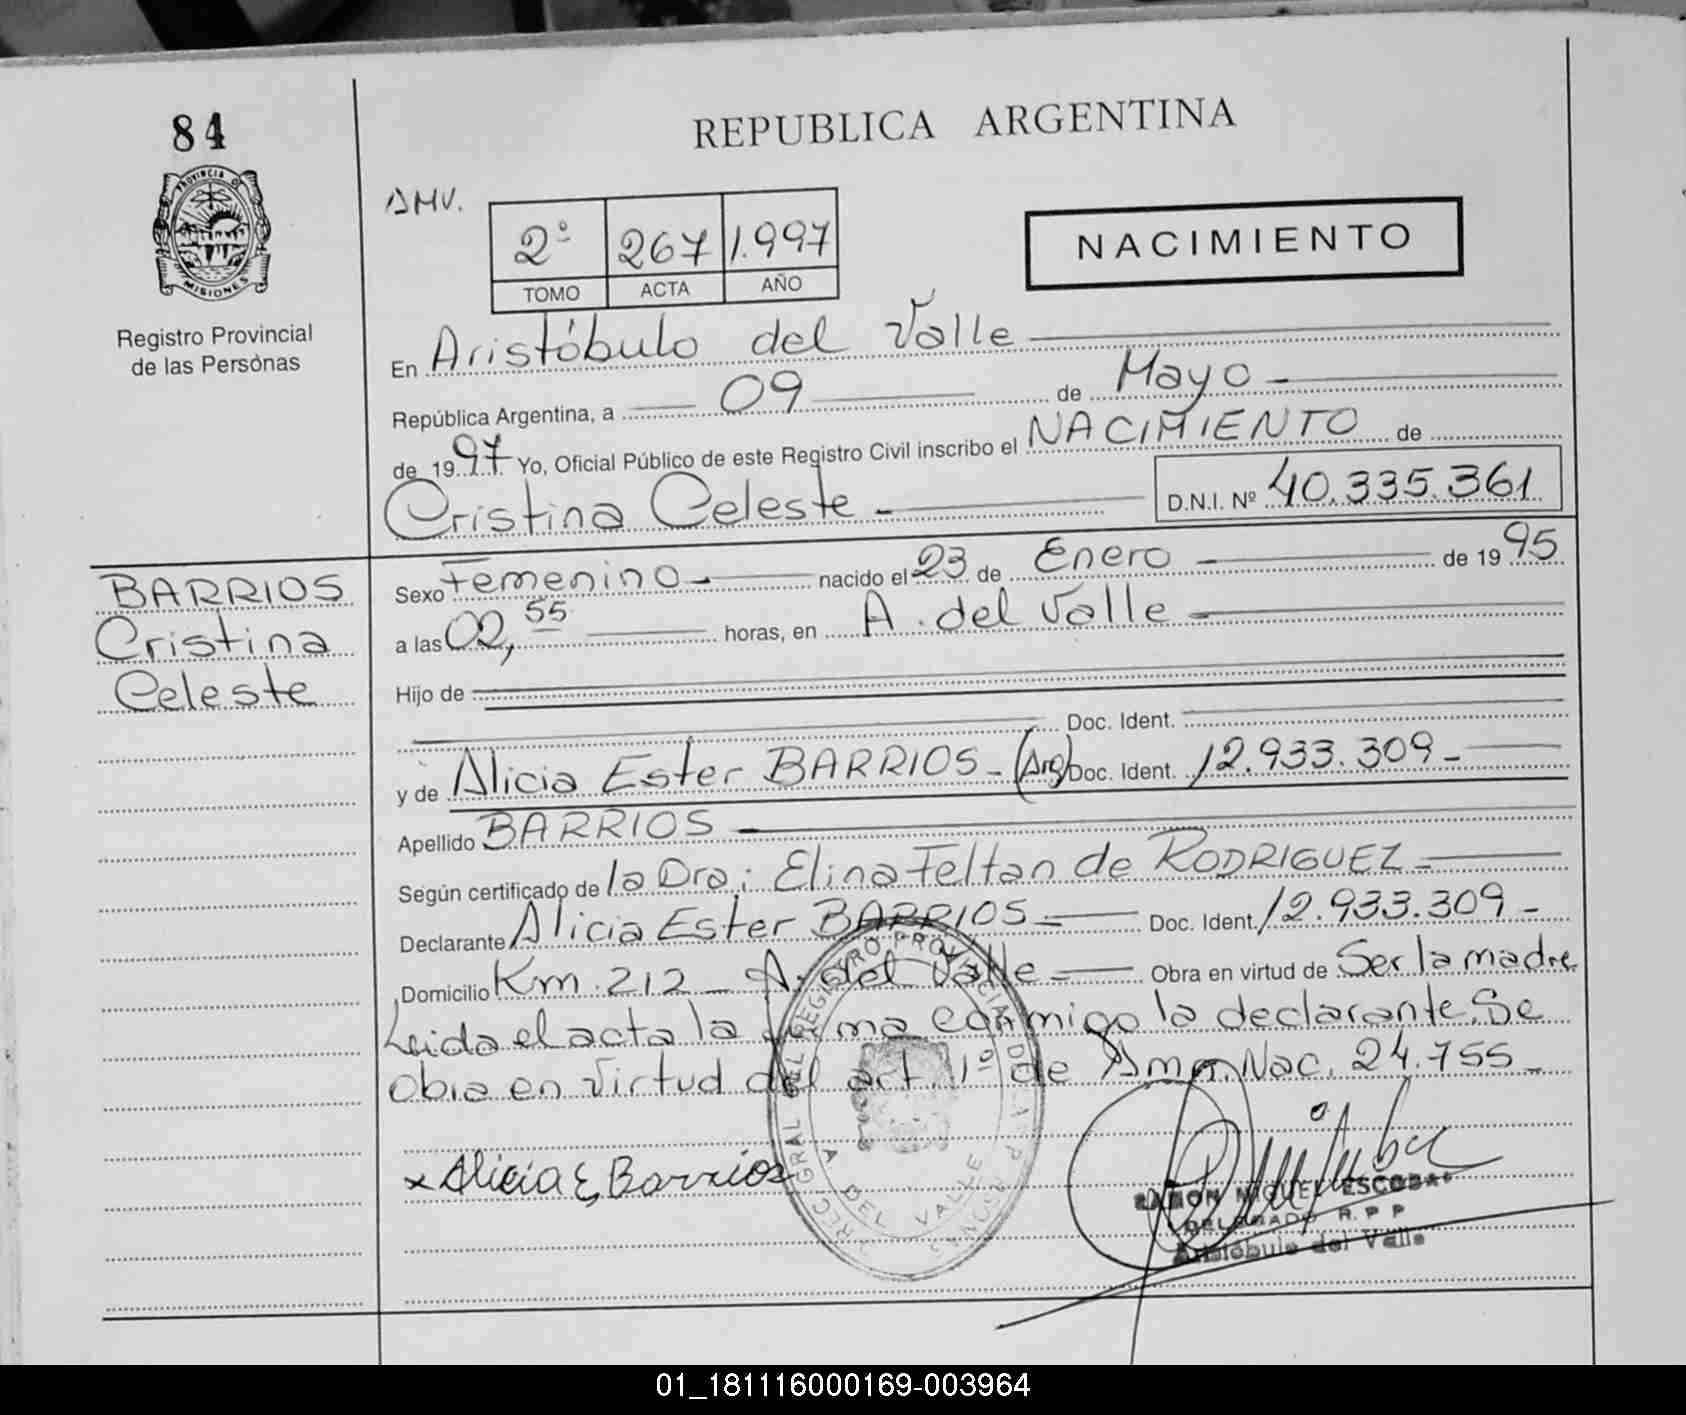 84
REPUBLICA ARGENTINA
PROVINCIA D
MISIONES
Registro Provincial
de las Personas
AMV.
2º 267 1.997
TOMO ACTA AÑO
NACIMIENTO
En Aristóbulo del Valle
República Argentina, a 09 de Mayo
de 1997 Yo, Oficial Público de este Registro Civil inscribo el NACIMIENTO de
Cristina Celeste D.N.I. Nº 40.335.361
BARRIOS
Cristina
Celeste
Sexo Femenino nacido el 23 de Enero de 1995
a las 02,55 horas, en A. del Valle
Hijo de
Doc. Ident.
y de Alicia Ester BARRIOS - (Arg) Doc. Ident. 12.933.309-
Apellido BARRIOS
Según certificado de la Dra: Elina Feltan de RODRIGUEZ
Declarante Alicia Ester BARRIOS Doc. Ident. 12.933.309-
Domicilio Km. 212 - A. del Valle Obra en virtud de Ser la madre
Leida el acta la firma conmigo la declarante. Se
Obra en virtud del art. 1º de Nac. 24.755-
x Alicia E Barrios
A DEL VALLE
RAMON MIGUEL ESCOBAR
DELEGADO R.P.P
Aristóbulo del Valle
01_181116000169-003964